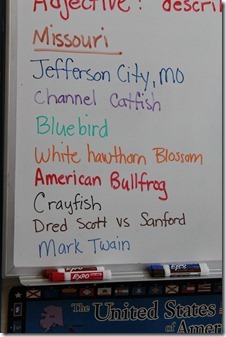 Adjective: describ
Missouri
Jefferson City, MO
Channel Catfish
Bluebird
White hawthorn Blossom
American Bullfrog
Crayfish
Dred Scott vs Sanford
Mark Twain
EXPO
EXPO
The United States
of Amer